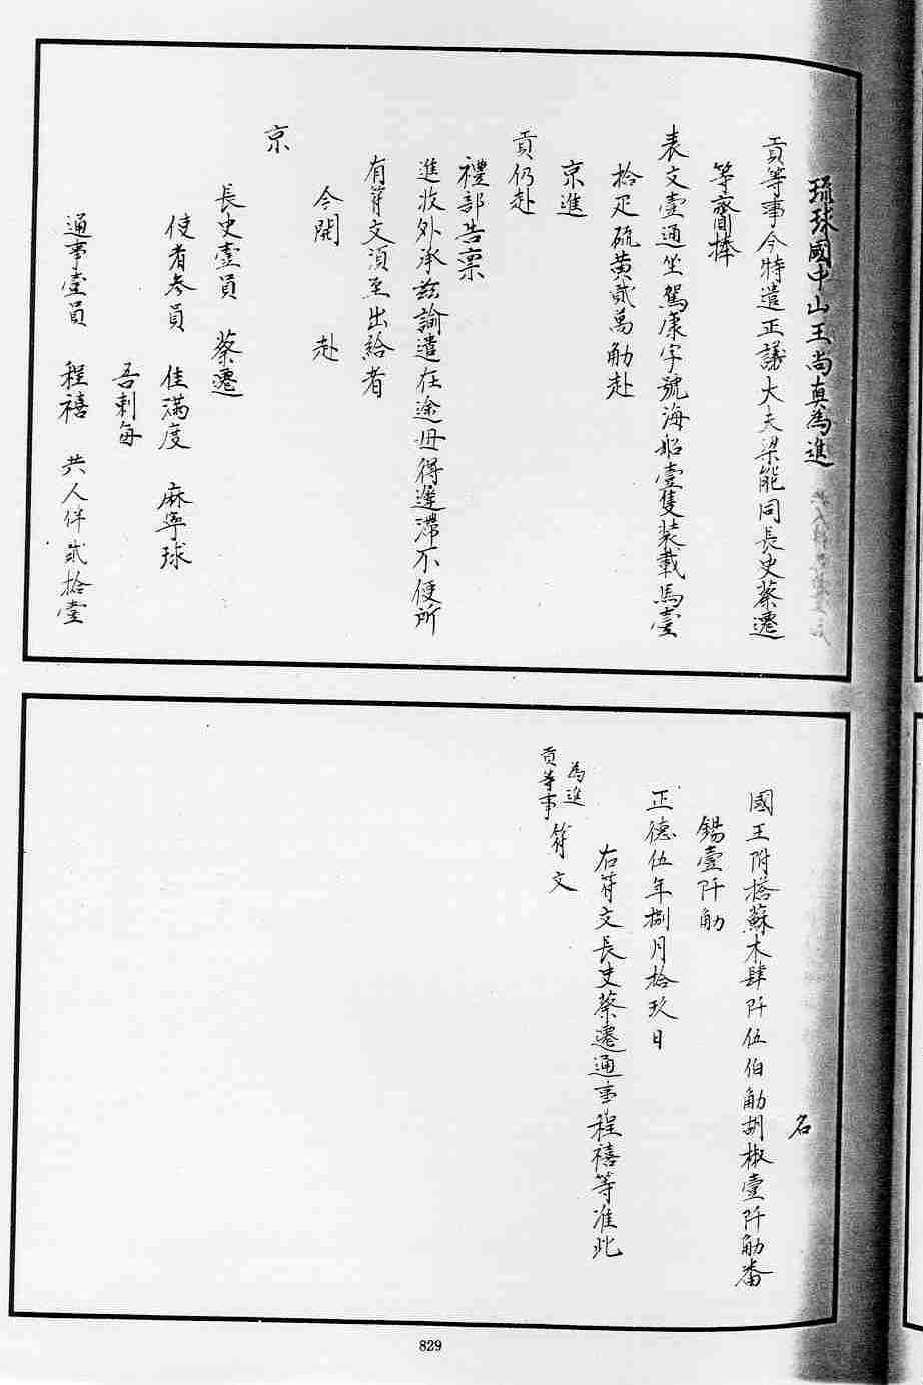 琉球國中山王尚真為進
貢等事今特遣正議大夫梁能同長史蔡遷
等齎捧
表文壹通坐駕康字號海船壹隻装載馬壹
拾疋硫黄貳萬觔赴
京進
貢仍赴
禮部告禀
進收外承玆諭遣在途毋得遲滯不便所
有符文須至出給者
今開　赴
京
長史壹員　蔡遷
使者參員　佳満度　麻寧球
吾剌每
通事壹員　程禧　共人伴貳拾壹
名
國王附搭蘇木肆阡伍伯觔胡椒壹阡觔番
錫壹阡觔
正德伍年捌月拾玖日
右符文長史蔡遷通事程禧等准此
為進
貢等事　符文
829